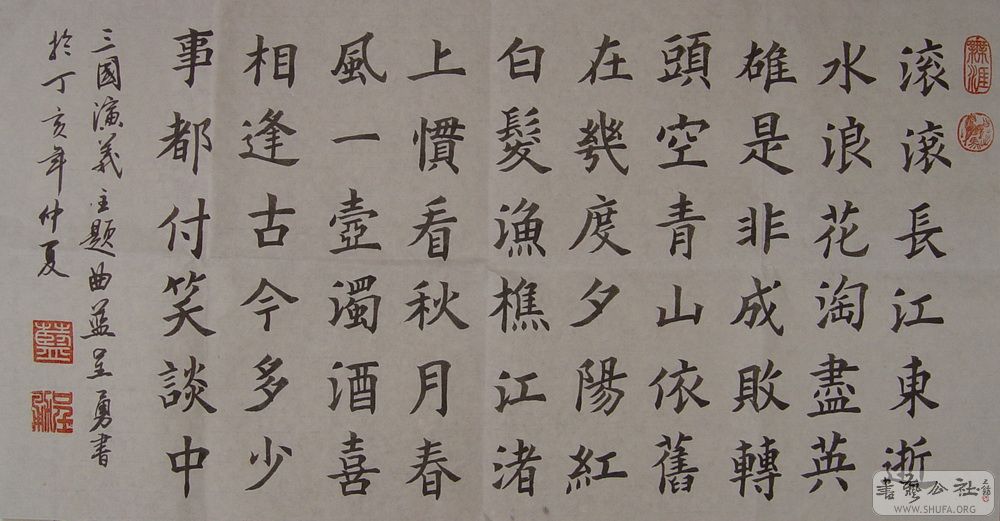 滚滚長江東逝
水浪花淘盡英
雄是非成敗轉
頭空青山依舊
在幾度夕陽紅
白髮漁樵江渚
上慣看秋月春
風一壺濁酒喜
相逢古今多少
事都付笑談中
三國演義主題曲蓝呈勇書
於丁亥年仲夏
無涯
藍
書藝公社
WWW.SHUFA.ORG